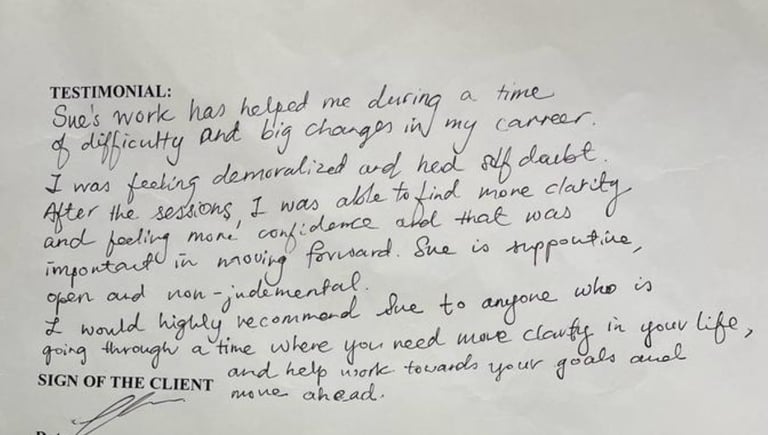 TESTIMONIAL:
Sue's work has helped me during a time
of difficulty and big changes in my carreer.
I was feeling demoralized and hed self doubt.
After the sessions, I was able to find more clarity
and feeling more confidence and that was
important in moving forward. Sue is supportive,
open and non-judemental.
I would highly recommend Sue to anyone who is
going through a time where you need more clarity in your life,
and help work towards your goals and
SIGN OF THE CLIENT
move ahead.